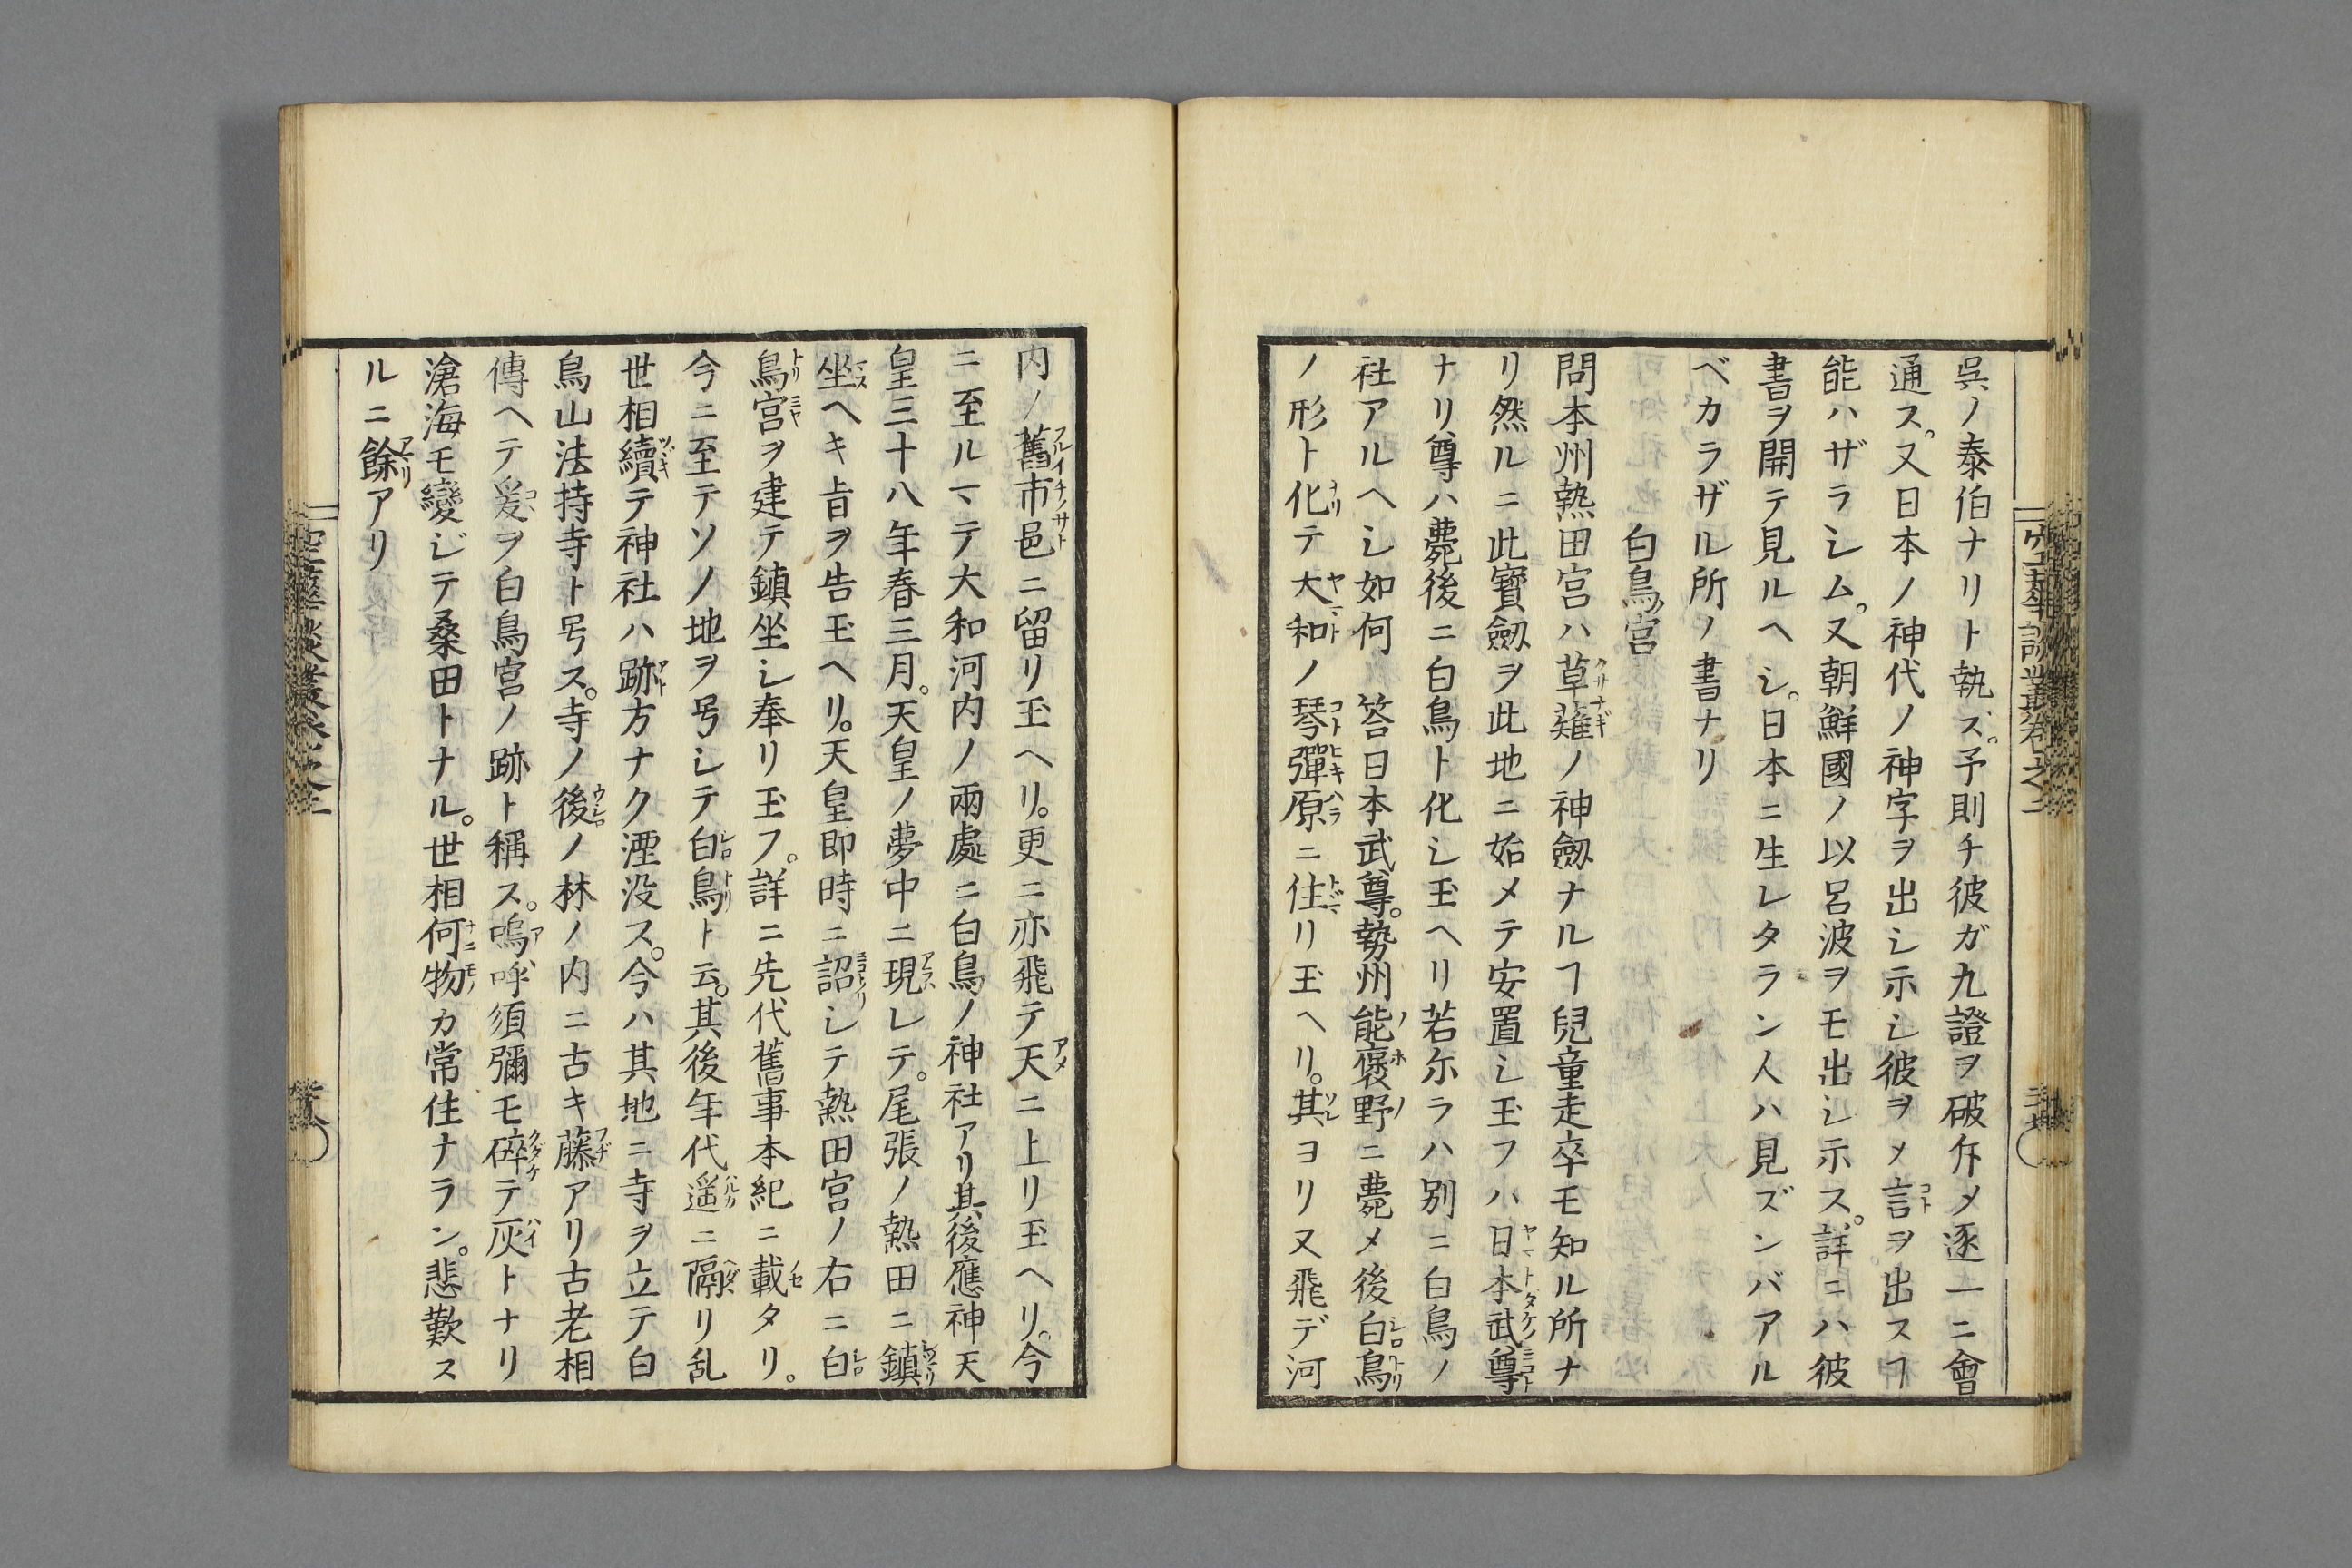 呉ノ泰伯ナリト執ス。予則チ彼ガ九證ヲ破斥メ逐一ニ會
通ス。又日本ノ神代ノ神字ヲ出シ示シ彼ヲメ言ヲ出スヿ
能ハザラシム。又朝鮮國ノ以呂波ヲモ出シ示ス。詳ニハ彼
書ヲ開テ見ルヘシ。日本ニ生レタラン人ハ見ズンバアル
ベカラザル所ノ書ナリ
白鳥ノ宮
問本州熱田宮ハ草薙ノ神劔ナルヿ兒童走卒モ知ル所ナ
リ然ルニ此寶劔ヲ此地ニ始メテ安置シ玉フハ日本武尊
ナリ尊ハ薨後ニ白鳥ト化シ玉ヘリ若尓ラハ別ニ白鳥ノ
社アルヘシ如何 答日本武尊。勢州能褒野ニ薨メ後白鳥
ノ形ト化テ大和ノ琴彈原ニ住リ玉ヘリ。其ヨリ又飛デ河
内ノ舊市邑ニ留リ玉ヘリ。更ニ亦飛テ天ニ上リ玉ヘリ。今
ニ至ルマテ大和河内ノ兩處ニ白鳥ノ神社アリ其後應神天
皇三十八年春三月。天皇ノ夢中ニ現レテ。尾張ノ熱田ニ鎮
坐ヘキ旨ヲ告玉ヘリ。天皇即時ニ詔シテ熱田宮ノ右ニ白
鳥宮ヲ建テ鎮坐シ奉リ玉フ。詳ニ先代舊事本紀ニ載タリ。
今ニ至テソノ地ヲ号シテ白鳥ト云。其後年代遥ニ隔リ乱
世相續テ神社ハ跡方ナク湮没ス。今ハ其地ニ寺ヲ立テ白
鳥山法持寺ト号ス。寺ノ後ノ林ノ内ニ古キ藤アリ古老相
傳ヘテ爰ヲ白鳥宮ノ跡ト稱ス。嗚呼須彌モ碎テ灰トナリ
滄海モ變ジテ桑田トナル。世相何物カ常住ナラン。悲歎ス
ルニ餘アリ